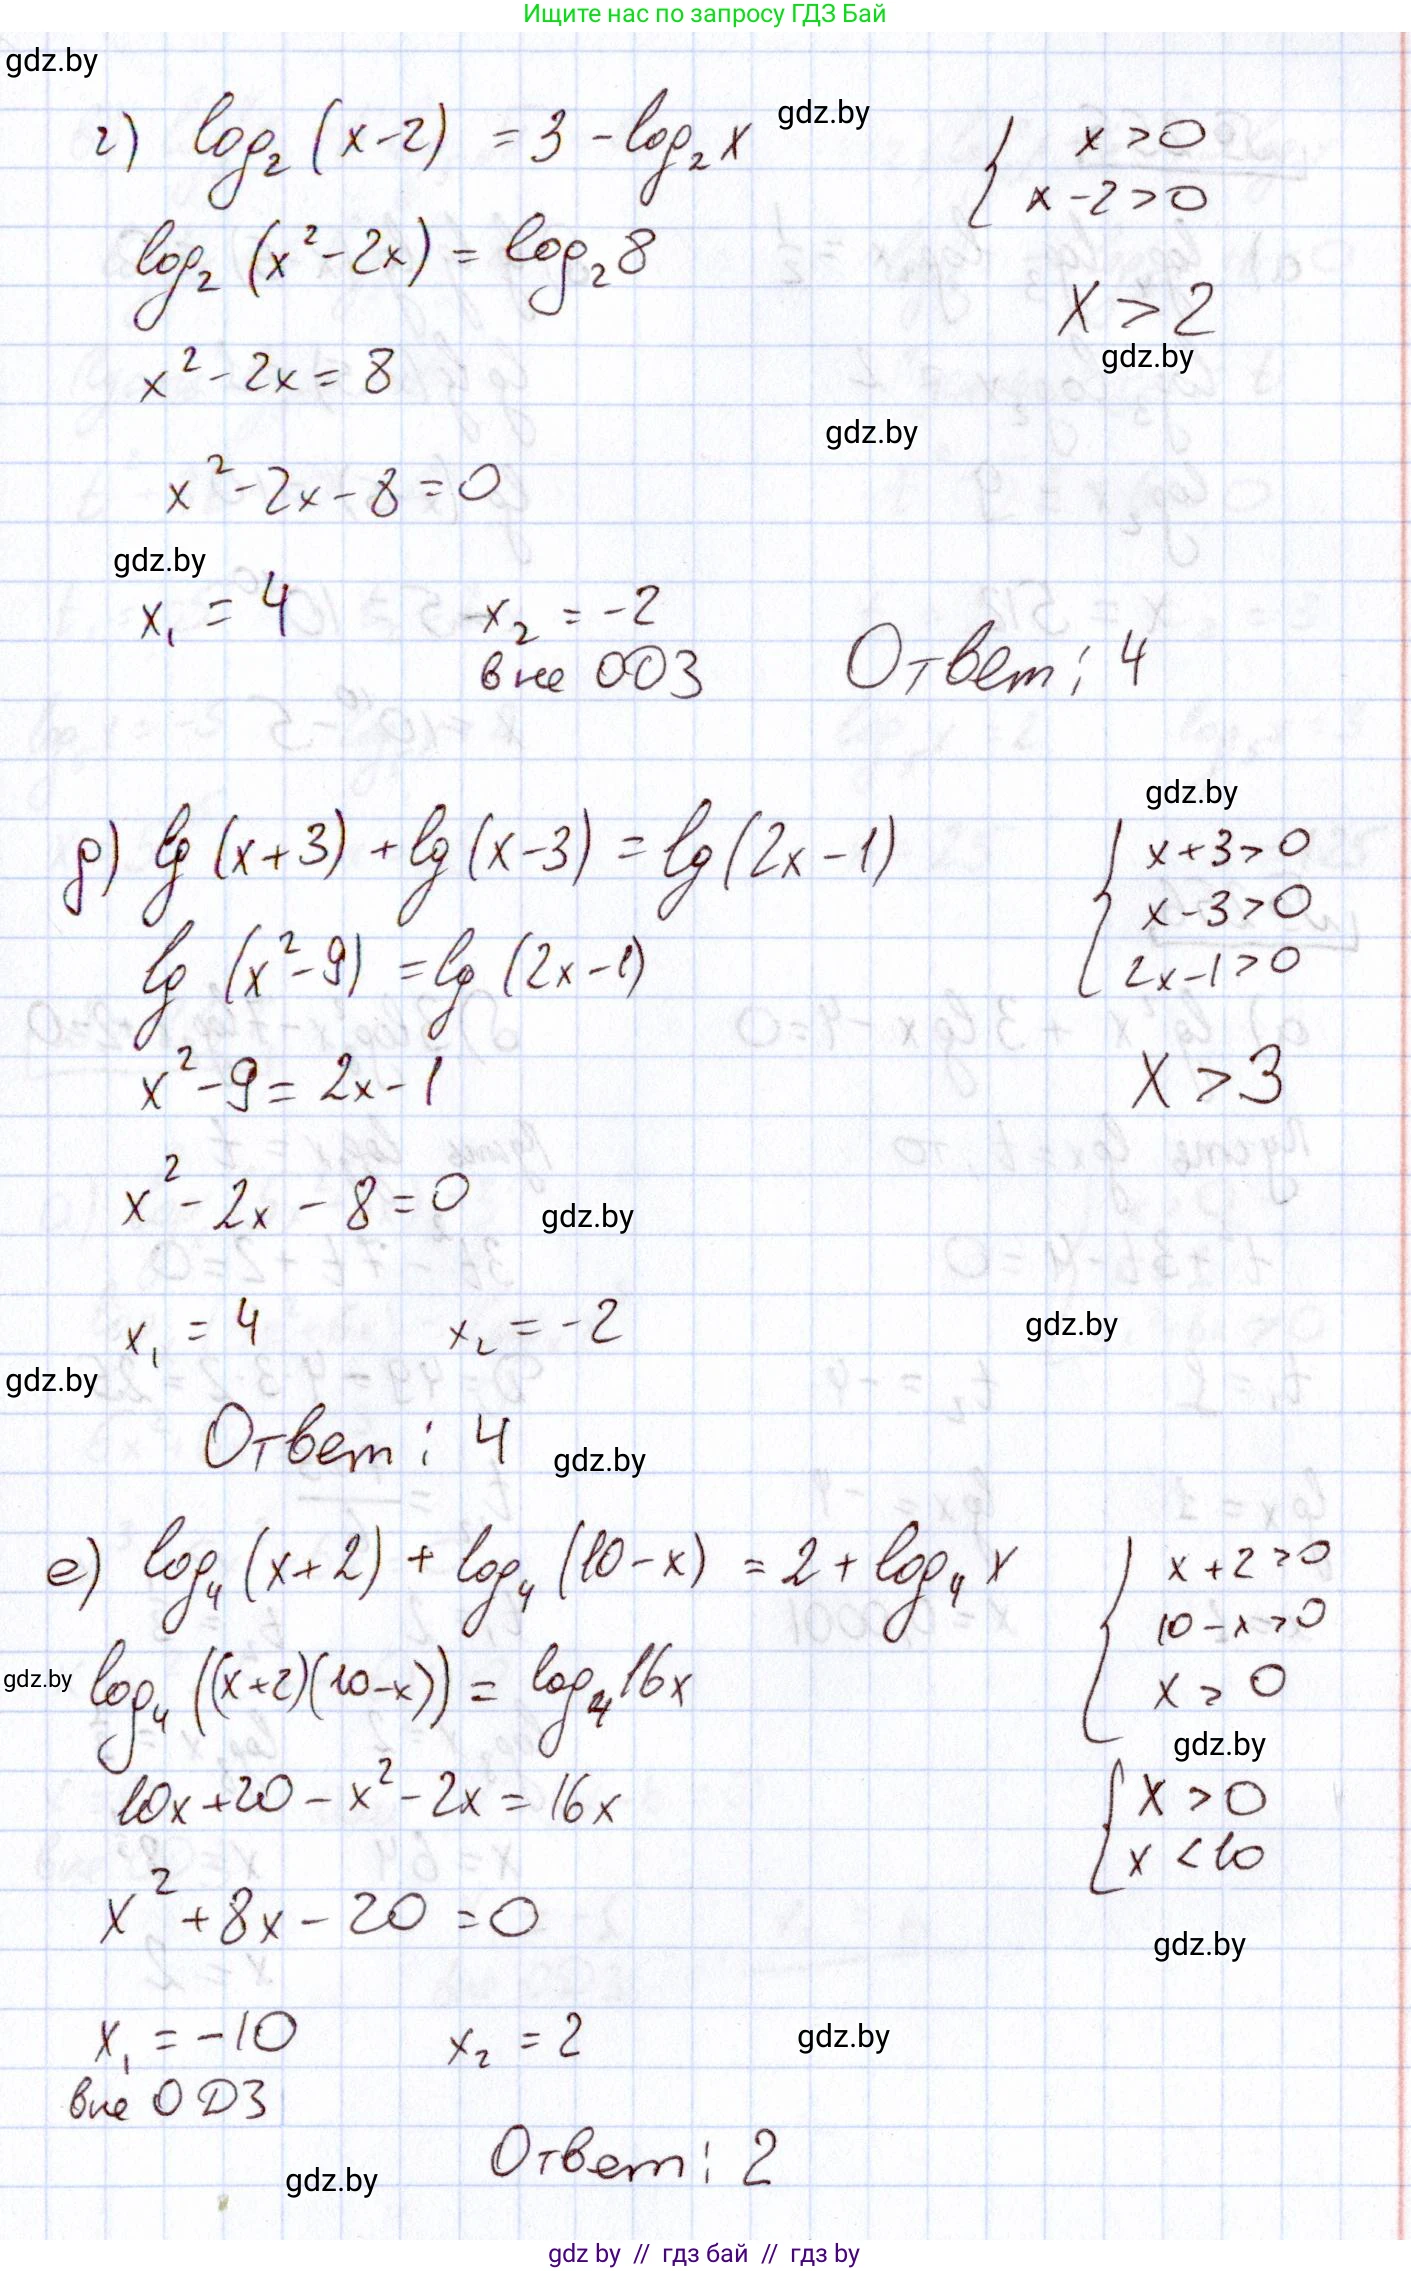 Ищите нас по запросу ГДЗ Бай
gdz.by
г) log₂ (x-2) = 3 - log₂ x
gdz.by
{ x > 0
x - 2 > 0
log₂ (x² - 2x) = log₂ 8
x > 2
gdz.by
x² - 2x = 8
gdz.by
x² - 2x - 8 = 0
gdz.by
x₁ = 4 x₂ = -2
вне ОДЗ
Ответ: 4
gdz.by
д) lg (x+3) + lg (x-3) = lg (2x-1)
{ x+3 > 0
x-3 > 0
2x-1 > 0
lg (x² - 9) = lg (2x-1)
x² - 9 = 2x - 1
x > 3
x² - 2x - 8 = 0
gdz.by
x₁ = 4 x₂ = -2
gdz.by
gdz.by
Ответ: 4
gdz.by
е) log₄ (x+2) + log₄ (10-x) = 2 + log₄ x
{ x+2 > 0
10-x > 0
x > 0
gdz.by
log₄ ((x+2)(10-x)) = log₄ 16x
gdz.by
10x + 20 - x² - 2x = 16x
{ x > 0
x < 10
x² + 8x - 20 = 0
gdz.by
x₁ = -10 x₂ = 2
вне ОДЗ
gdz.by
Ответ: 2
gdz.by
gdz by // гдз бай // гдз by